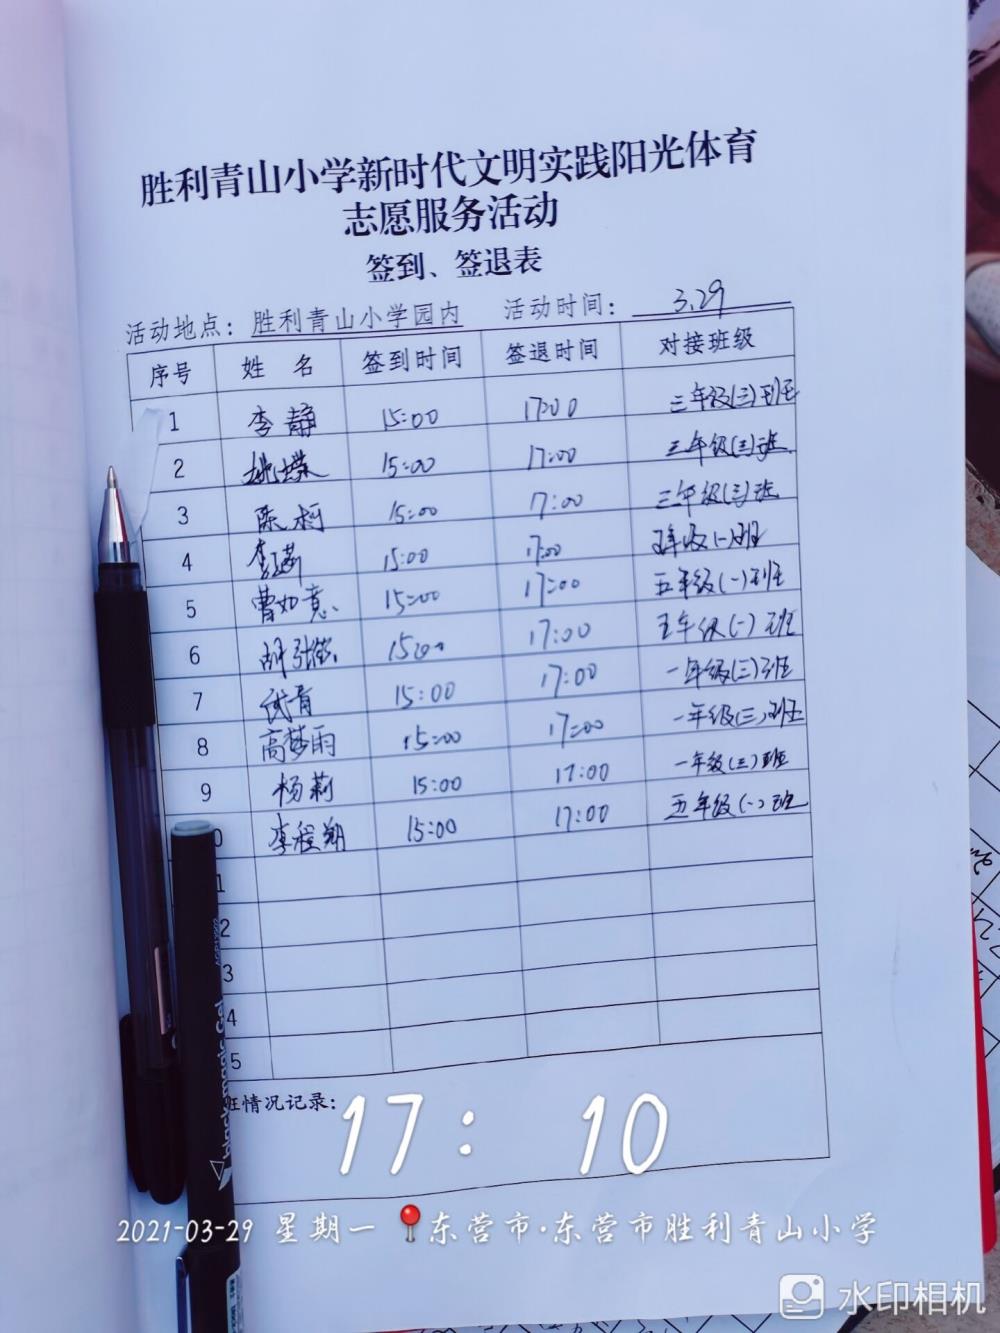 胜利青山小学新时代文明实践阳光体育
志愿服务活动
签到、签退表
活动地点：胜利青山小学园内 活动时间：3.29
序号 姓 名 签到时间 签退时间 对接班级
1 李静 15:00 17:00 三年级(三)班
2 15:00 17:00 三年级(三)班
3 陈柯 15:00 17:00 三年级(三)班
4 15:00 17:00 五年级(一)班
5 曹如意 15:00 17:00 五年级(一)班
6 15:00 17:00 五年级(一)班
7 武青 15:00 17:00 一年级(三)班
8 高梦雨 15:00 17:00 一年级(三)班
9 杨莉 15:00 17:00 一年级(三)班
0 李程翔 15:00 17:00 五年级(一)班
1
2
3
4
5
班情况记录：
17: 10
2021-03-29 星期一 东营市·东营市胜利青山小学
水印相机